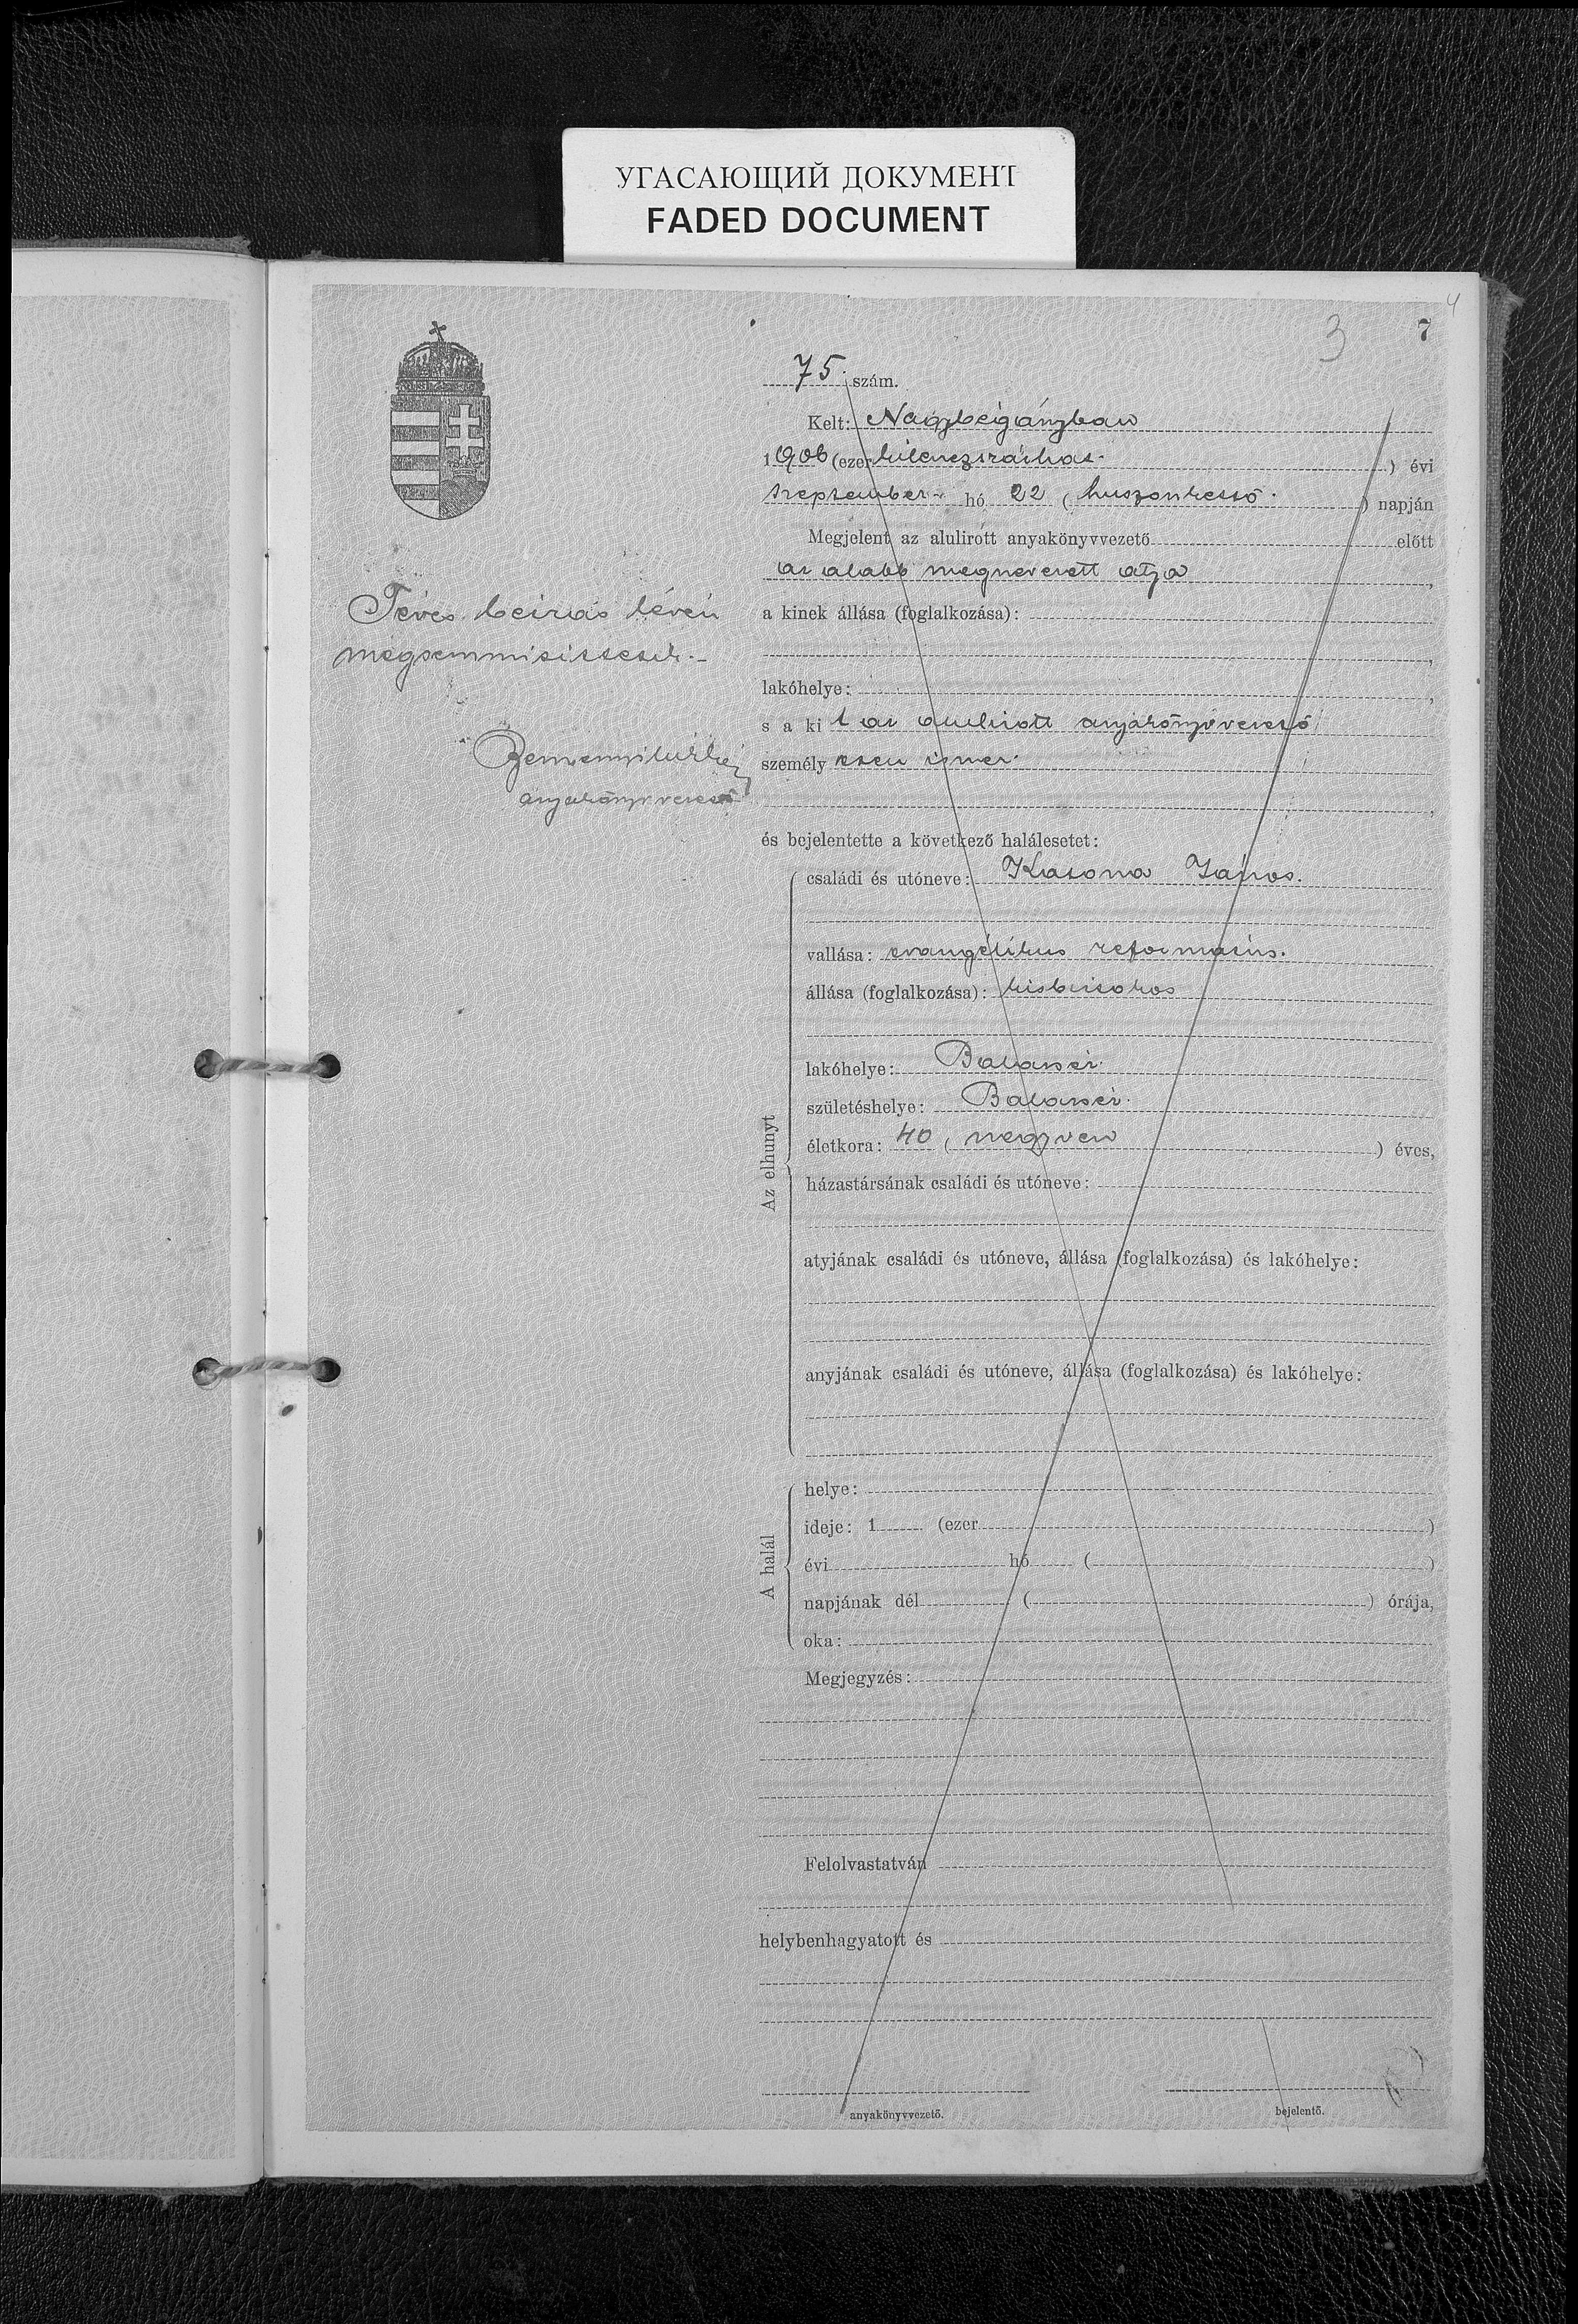 УГАСАЮЩИЙ ДОКУМЕНТ
FADED DOCUMENT
4
3
7
75. szám.
Kelt: Nagybégányban
1906 (ezer kilenczszázhat.) évi
szeptember hó 22 (huszonkettő.) napján
Megjelent az alulirott anyakönyvvezető előtt
az alább megnevezett atya,
a kinek állása (foglalkozása):
lakóhelye:
s a kit az alulirott anyakönyvvezető
személyesen ismer.
és bejelentette a következő halálesetet:
Téves beirás lévén
megsemmisittetett.-
anyakönyvvezető
Az elhunyt
családi és utóneve: Katona János.
vallása: evangélikus református.
állása (foglalkozása): kisbirtokos
lakóhelye: Balazsér.
születéshelye: Balazsér.
életkora: 40 (negyven) éves,
házastársának családi és utóneve:
atyjának családi és utóneve, állása (foglalkozása) és lakóhelye:
anyjának családi és utóneve, állása (foglalkozása) és lakóhelye:
A halál
helye:
ideje: 1 (ezer )
évi hó ( )
napjának dél ( ) órája,
oka:
Megjegyzés:
Felolvastatván
helybenhagyatott és
anyakönyvvezető.
bejelentő.